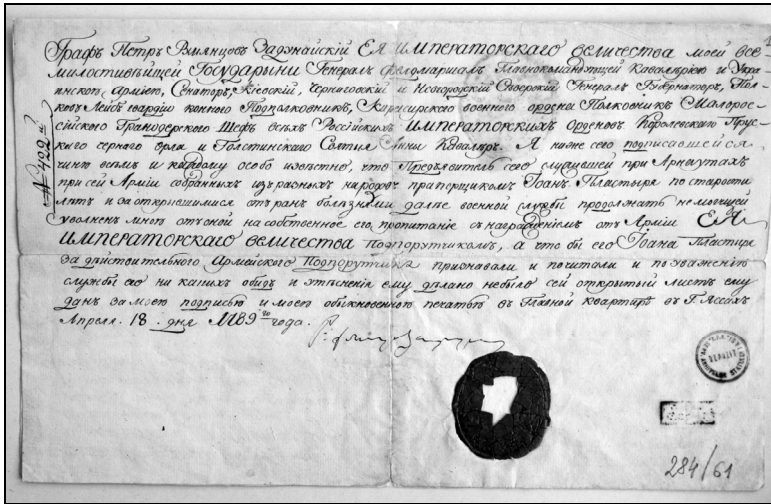 Графъ Петръ Румянцовъ Задунайскій Ея Императорскаго величества моей все
милостивѣйщей Государыни Генералъ Фелдмаршалъ Главнокомандующей Кавалерією и Укра
инскою Армією, Сенаторъ, Кіевскій, Черниговскій и Новгородскій Сѣверскій Генералъ Губернаторъ, Пол
ковъ Лейбъ гвардіи конного Подполковникъ, Кирасирского военного ордена Полковникъ Малорос
сійского Гранодерского Шефъ всѣхъ Россійскихъ Императорскихъ Орденовъ Королевскаго Прус
кого черного орла и Голстинского Святыя Анны Кавалеръ. Я ниже сего подписавшейся
чиню всѣмъ и каждому особо извѣстно, что Предъявитель сего служившей при Арнаутахъ
при сей Арміи собранныхъ изъ разныхъ народовъ прапорщикомъ Іоанъ Пластыра по старости
лѣтъ и за открывшимися отъ ранъ болѣзнями далѣе военной службы продолжать немогущей
уволенъ мною отъ оной на собственное его пропитаніе с награжденіемъ отъ Арміи ЕЯ
Императорскаго величества Подпорутчикомъ, а что бы его Іоана Пластира
за дѣйствителного Армейского Подпорутчика признавали и почитали и по уваженію
службы его ни какихъ обидъ и стѣсненія ему дѣлано небыло сей открытый листъ ему
данъ за моею подписью и моею обыкновенною печатью въ Главной квартирѣ въ Г: Яссахъ
Апреля. 18. дня 1789го года.
№ 422й
284/61